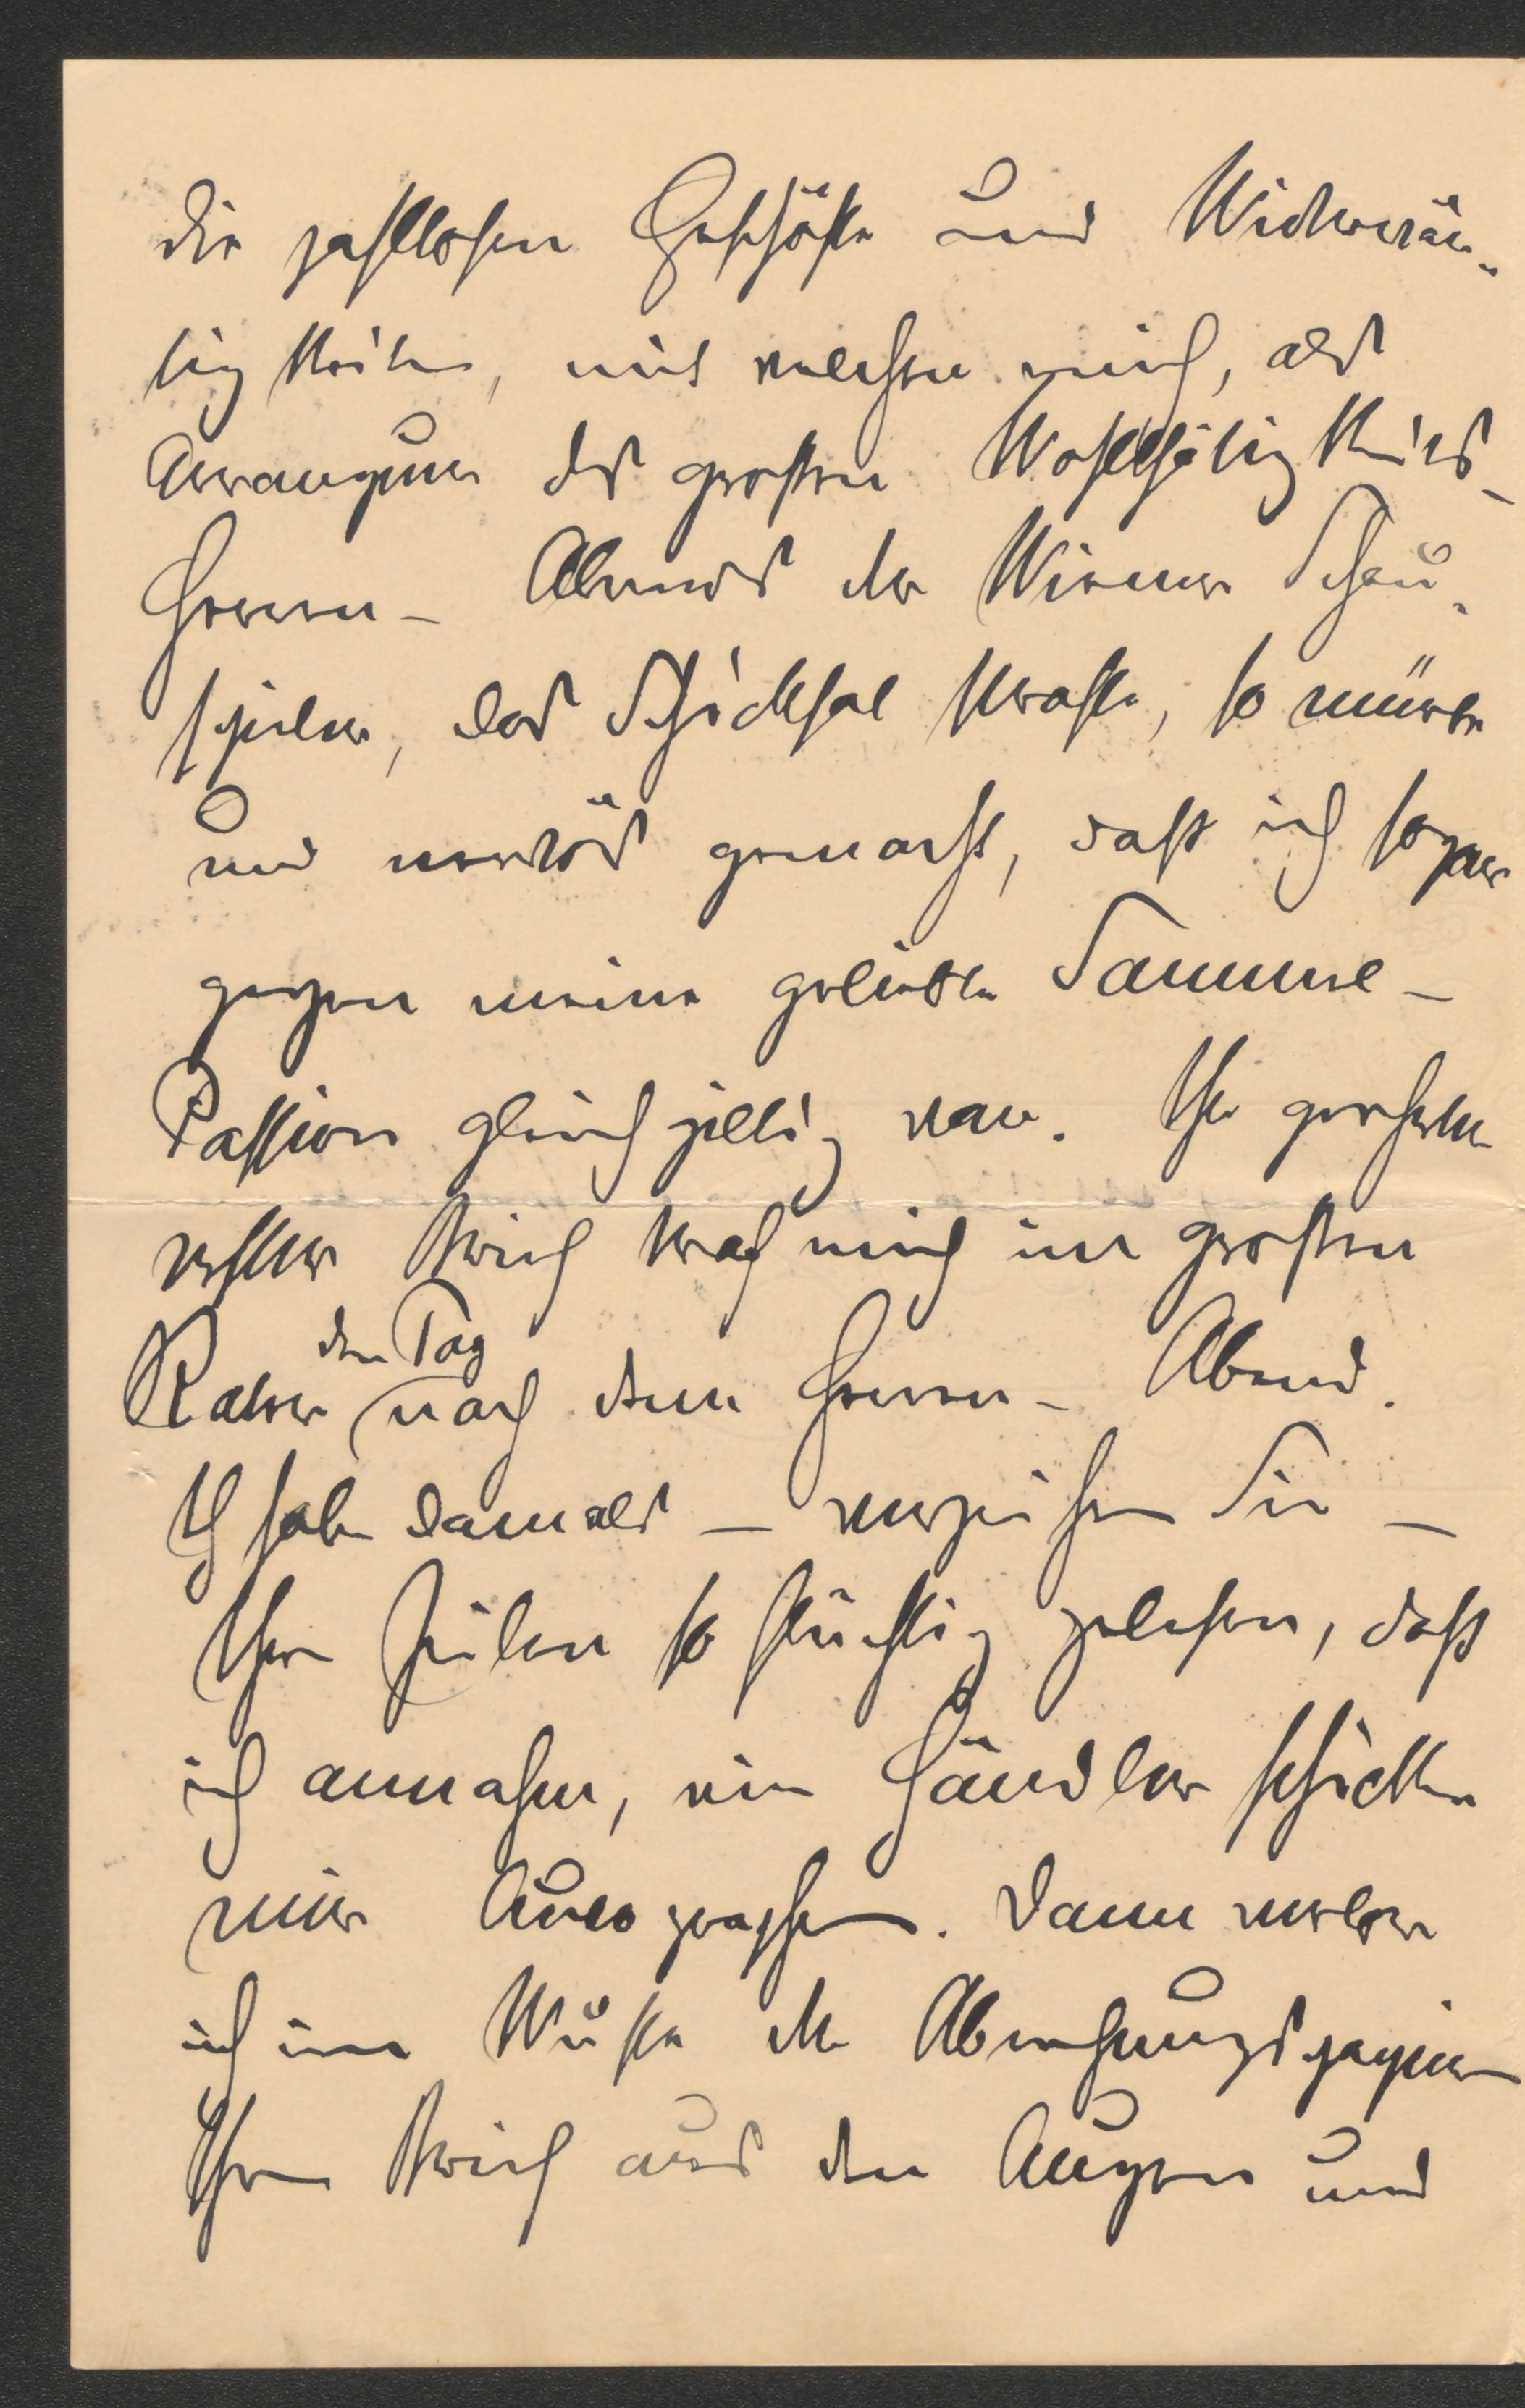 die zahllosen Geschäfte und Widerwär-
tigkeiten, mit welchen mich, als
Arrangeur des großen Wohlthätigkeits-
Herren- Abends der Wiener Schau-
spieler, das Schicksal strafte, so mürbe
und nervös gemacht, daß ich sogar
gegen meine geliebte Sammel-
Passion gleichgiltig war. Ihr geehrter
erster Brief traf mich im großen
den Tag
Kater nach dem Herren- Abend.
Ich habe damals – verzeihen Sie –
Ihre Zeilen so flüchtig gelesen, daß
ich annahm, ein Händler schicke
mir Autographen. Dann verlor
ich im Wuste der Abrechnungspapiere
Ihren Brief aus den Augen und